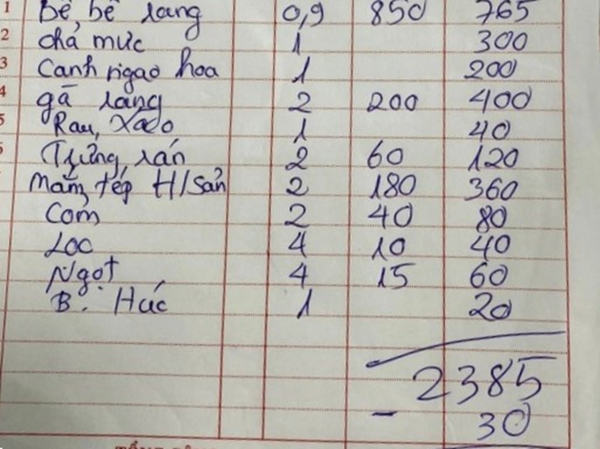 1 Bề, bề rang 0,9 850 765
2 chả mực 1 300
3 Canh ngao hoa 1 200
4 gà rang 2 200 400
5 Rau, Xào 1 40
6 Trứng, rán 2 60 120
Mắm, tép H/Sản 2 180 360
Cơm 2 40 80
Lọc 4 10 40
Ngọt 4 15 60
B. Húc 1 20
2385
- 30